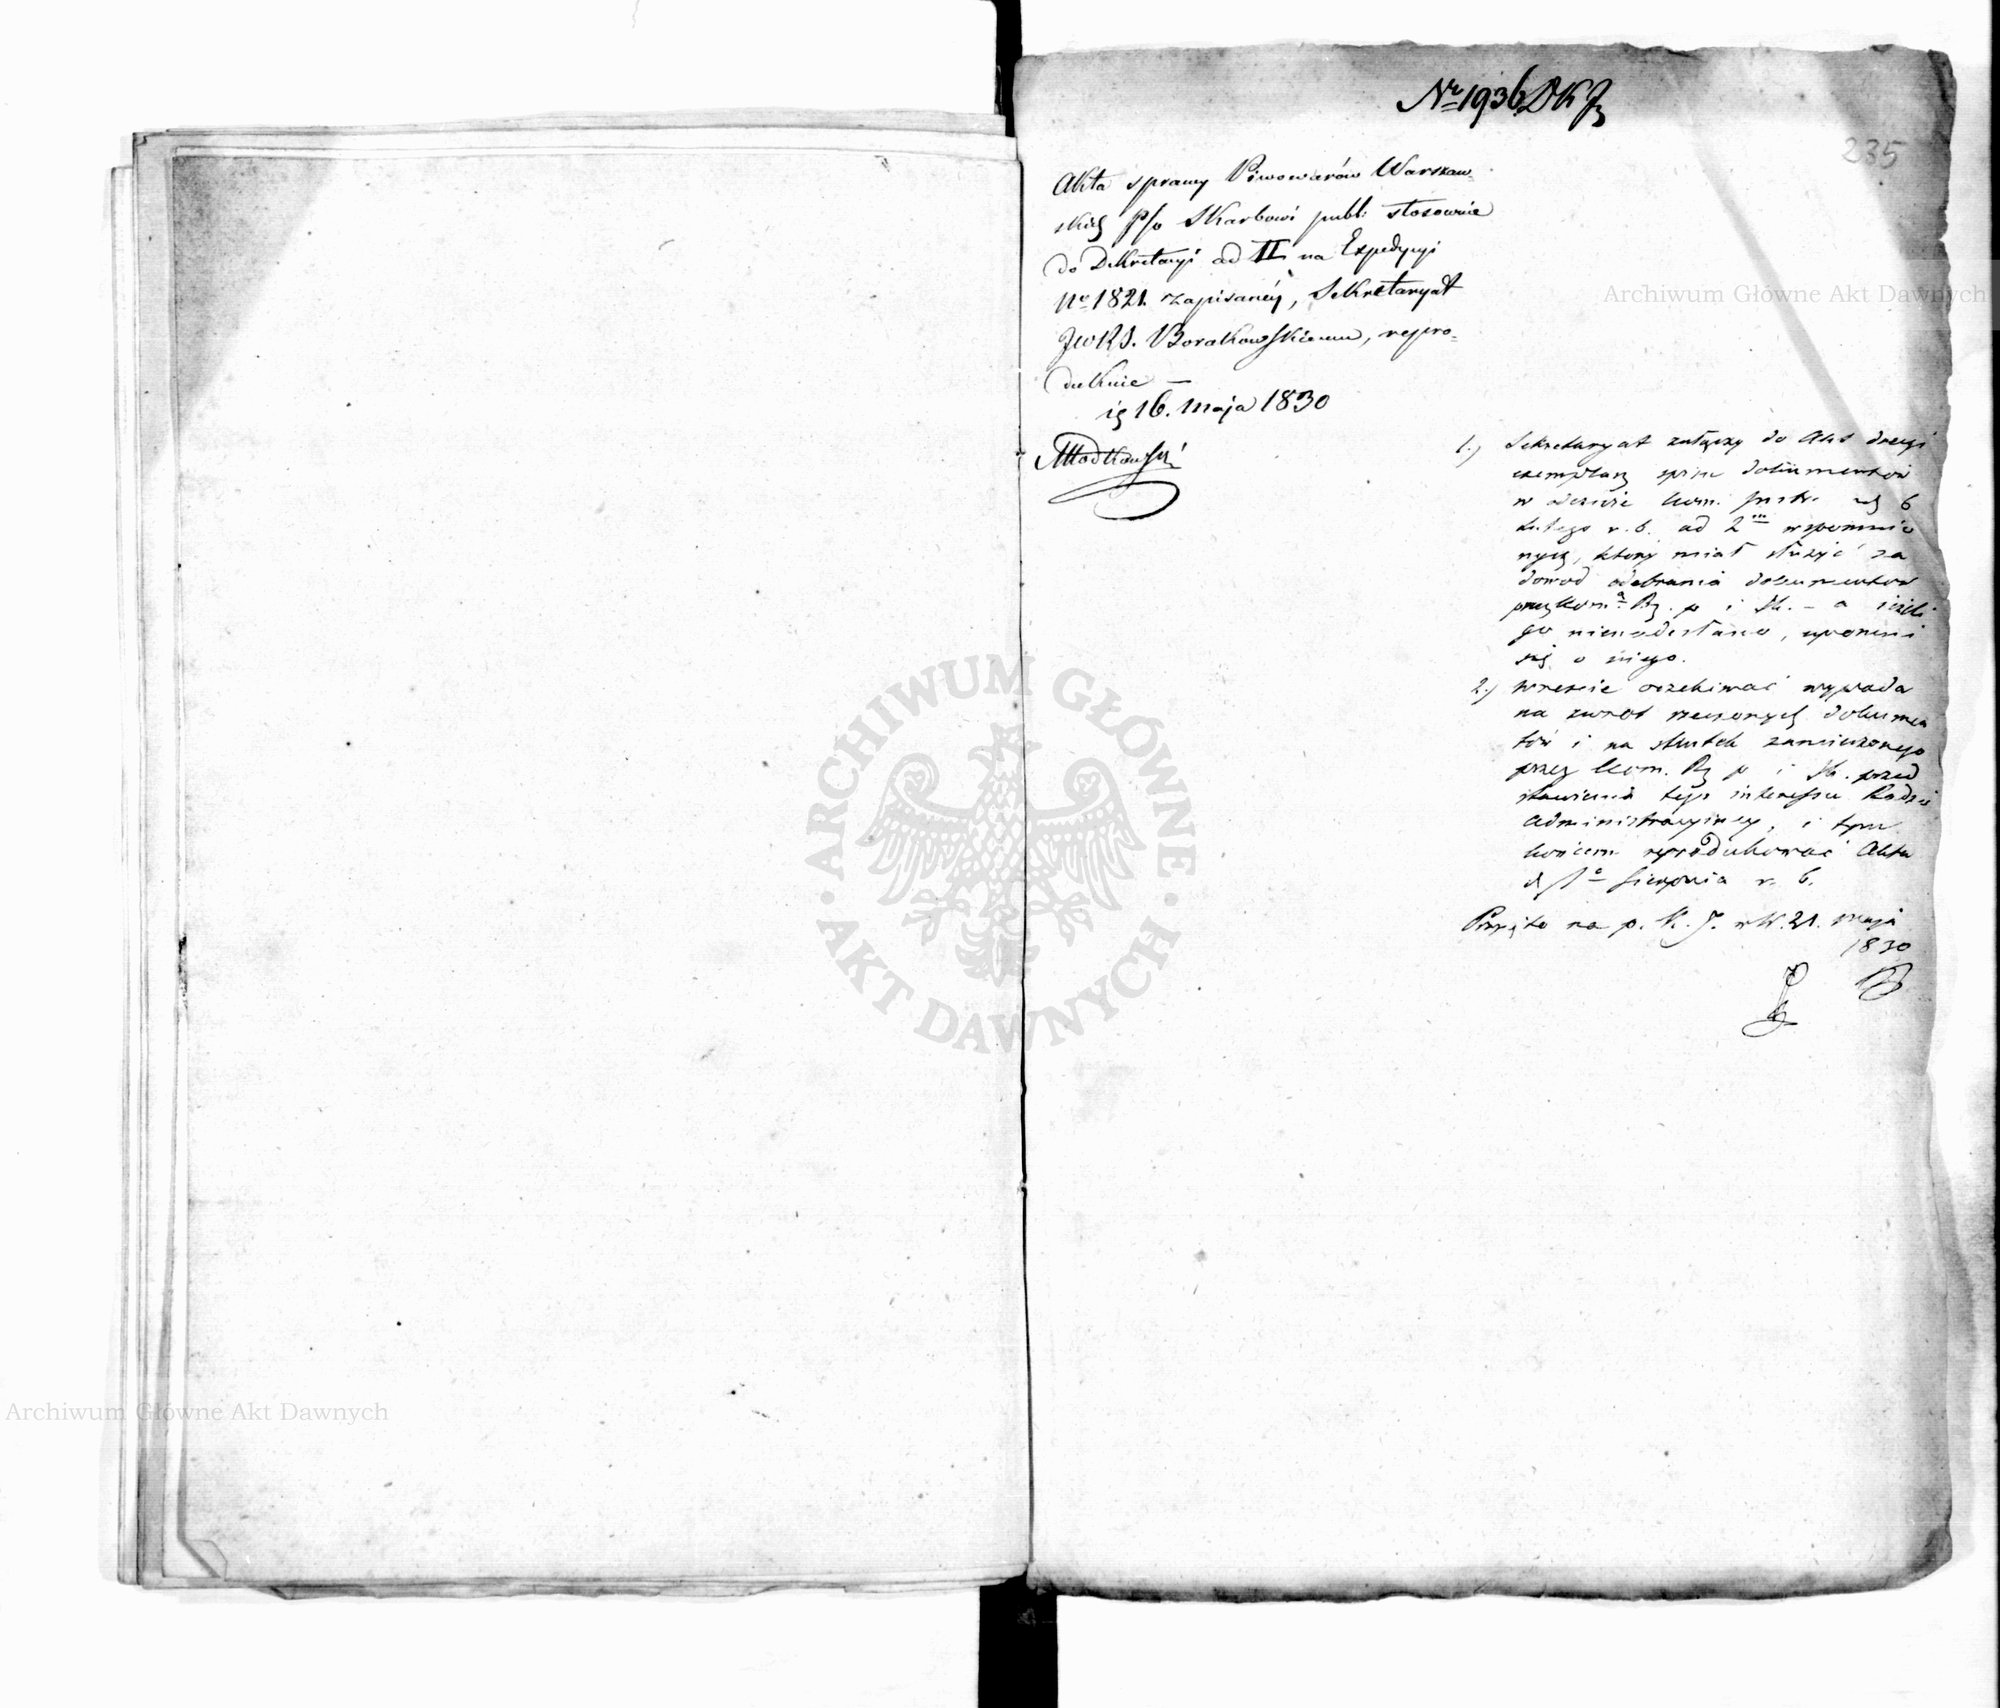 Nr 1936 DKJ
235
Akta sprawy Piwowarów Warszaw-
skich p/o Skarbowi publ: stosownie
do Dekretacyi ad II na Expedycyi
No 1821. zapisanéy, Sekretaryat
JWRS. Borakowskiemu, repro-
dukuie —
16. Maja 1830
1.) Sekretaryat załączy do Akt drugi
exemplarz spisu dokumentów
w odezwie kom. 6
Lutego r. b. ad 2 wspomnio
nych, który miał służyć za
dowod odebrania dokumentów
przez kom. Rz. p i Sk. – a ieżeli
go nienadesłano, upomni
się o niego.
2.) wreście oczekiwać wypada
na zwrot rzeczonych dokumen
tów i na skutek zamierzonego
przez kom. Rz p i Sk. przed
stawienia tego interessu Radzie
Administracyiney, i tym
końcem reprodukować Akta
1o Sierpnia r. b.
Przyięto na p. K. J. w W. 21. maja
1830
Archiwum Główne Akt Dawnych
ARCHIWUM GŁÓWNE
AKT DAWNYCH
Archiwum Główne Akt Dawnych